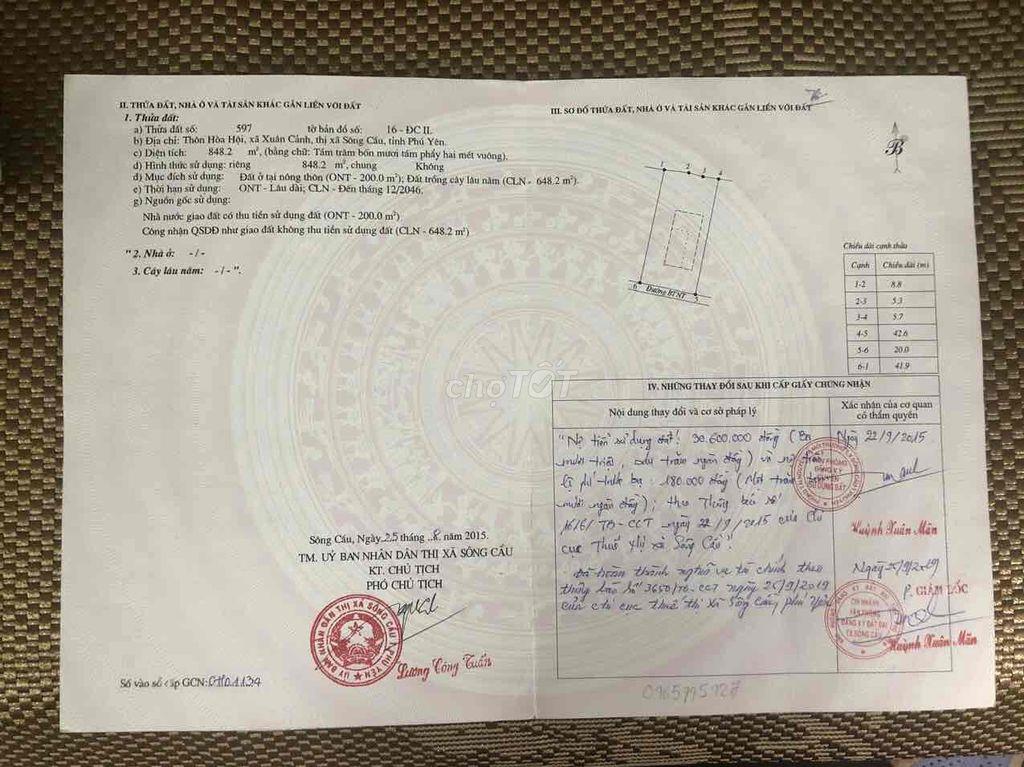 II. THỬA ĐẤT, NHÀ Ở VÀ TÀI SẢN KHÁC GẮN LIỀN VỚI ĐẤT
1. Thửa đất:
a) Thửa đất số: 597 tờ bản đồ số: 16 - ĐC II.
b) Địa chỉ: Thôn Hòa Hội, xã Xuân Cảnh, thị xã Sông Cầu, tỉnh Phú Yên.
c) Diện tích: 848.2 m², (bằng chữ: Tám trăm bốn mươi tám phẩy hai mét vuông).
d) Hình thức sử dụng: riêng 848.2 m², chung Không
đ) Mục đích sử dụng: Đất ở tại nông thôn (ONT - 200.0 m²); Đất trồng cây lâu năm (CLN - 648.2 m²).
e) Thời hạn sử dụng: ONT - Lâu dài; CLN - Đến tháng 12/2046.
g) Nguồn gốc sử dụng:
Nhà nước giao đất có thu tiền sử dụng đất (ONT - 200.0 m²)
Công nhận QSDĐ như giao đất không thu tiền sử dụng đất (CLN - 648.2 m²)
" 2. Nhà ở: -/-
3. Cây lâu năm: -/- ".
Sông Cầu, Ngày 25 tháng .8. năm 2015.
TM. UỶ BAN NHÂN DÂN THỊ XÃ SÔNG CẦU
KT. CHỦ TỊCH
PHÓ CHỦ TỊCH
Lương Công Tuấn
Số vào sổ cấp GCN: CH01134
III. SƠ ĐỒ THỬA ĐẤT, NHÀ Ở VÀ TÀI SẢN KHÁC GẮN LIỀN VỚI ĐẤT
B
1 2 3 4
6 Đường BTNT 5
Chiều dài cạnh thửa
Cạnh Chiều dài (m)
1-2 8.8
2-3 5.3
3-4 5.7
4-5 42.6
5-6 20.0
6-1 41.9
chợTỐT
IV. NHỮNG THAY ĐỔI SAU KHI CẤP GIẤY CHỨNG NHẬN
Nội dung thay đổi và cơ sở pháp lý
Xác nhận của cơ quan có thẩm quyền
"Nợ tiền sử dụng đất: 30.600.000 đồng (Ba
mươi triệu, sáu trăm ngàn đồng) và nợ tiền
lệ phí trước bạ: 180.000 đồng (Một trăm tám
mươi ngàn đồng); theo Thông báo số
1616/TB-CCT ngày 22/9/2015 của Chi
cục Thuế thị xã Sông Cầu".
Ngày 22/9/2015
Huỳnh Xuân Mãn
Đã hoàn thành nghĩa vụ tài chính theo
thông báo số 3650/TB-CCT ngày 25/9/2019
của chi cục thuế thị xã Sông Cầu, Phú Yên
Ngày 25/9/2019
P. GIÁM ĐỐC
Huỳnh Xuân Mãn
0965795927